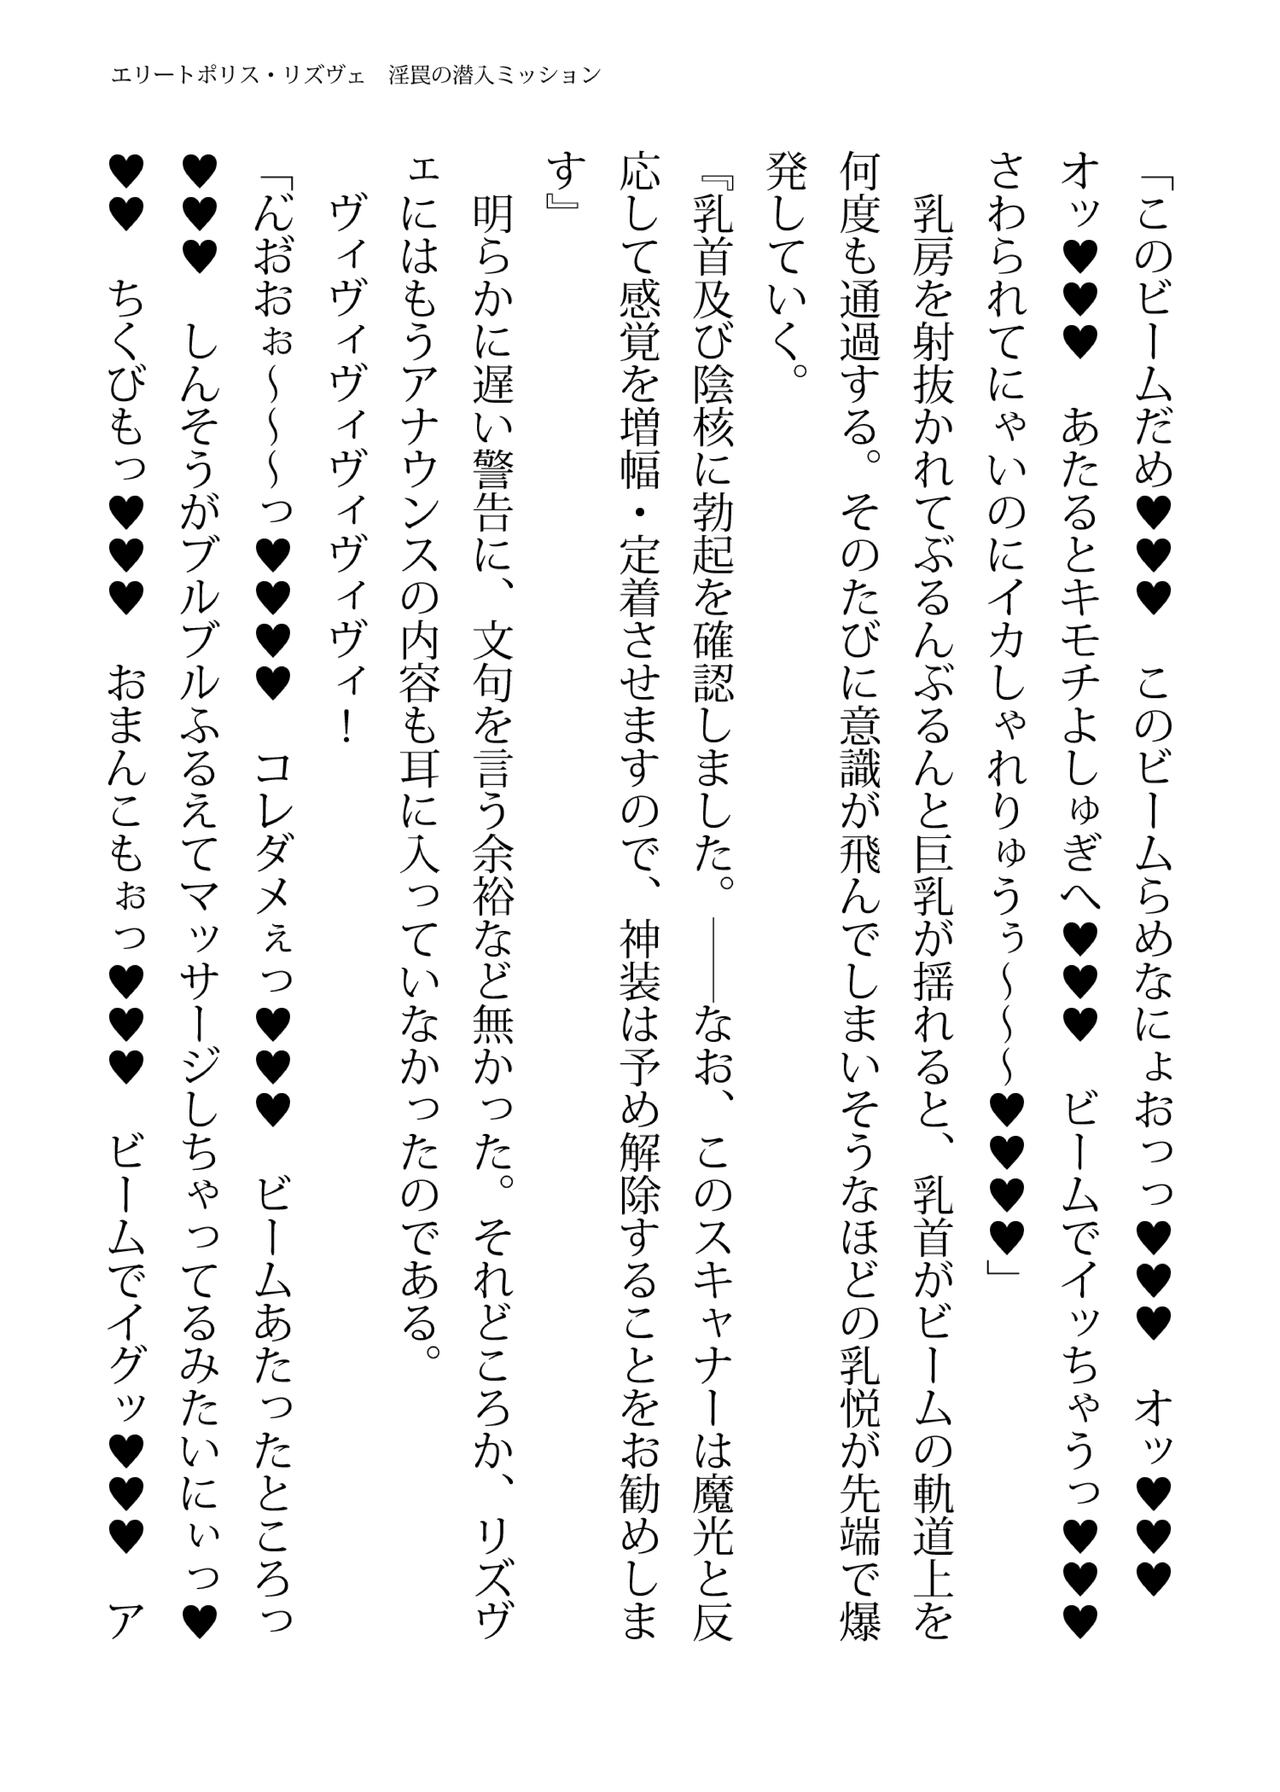 エリートポリス・リズヴェ　淫罠の潜入ミッション
「このビームだめ♥♥♥　このビームらめなにょおっっ♥♥♥　オッ♥♥♥
オッ♥♥♥　あたるとキモチよしゅぎへ♥♥♥　ビームでイッちゃうっ♥♥♥
さわられてにゃいのにイカしゃれりゅうぅ～～～♥♥♥♥」
　乳房を射抜かれてぶるんぶるんと巨乳が揺れると、乳首がビームの軌道上を
何度も通過する。そのたびに意識が飛んでしまいそうなほどの乳悦が先端で爆
発していく。
『乳首及び陰核に勃起を確認しました。――なお、このスキャナーは魔光と反
応して感覚を増幅・定着させますので、神装は予め解除することをお勧めしま
す』
　明らかに遅い警告に、文句を言う余裕など無かった。それどころか、リズヴ
ェにはもうアナウンスの内容も耳に入っていなかったのである。
　ヴィヴィヴィヴィヴィヴィ！
「ん゛お゛おぉ～～～っ♥♥♥♥　コレダメぇっ♥♥♥　ビームあたったところっ
♥♥♥　しんそうがブルブルふるえてマッサージしちゃってるみたいにぃっ♥
♥♥　ちくびもっ♥♥♥　おまんこもぉっ♥♥♥　ビームでイグッ♥♥♥　ア